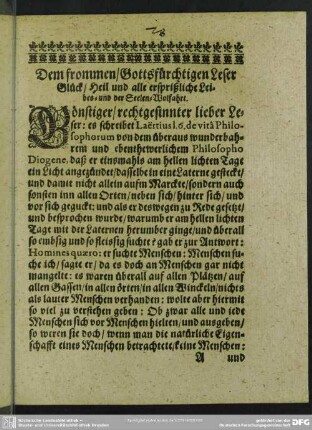 Dem frommen/Gottsfürchtigen Leser
Glück/ Heil und alle ersprißliche Lei-
bes-und der Seelen-Wolfahrt.
Gönstiger/rechtgesinnter lieber Le-
ser: es schreibet Laërtius l.6, de vitâ Philo-
sophorum von dem überaus wunderbah-
ren und ebenthewerlichem Philosopho
Diogene, daß er einsmahls am hellen lichten Tage
ein Licht angezündet/dasselbe in eine Laterne gesteckt/
und damit nicht allein aufm Marckte/sondern auch
sonsten in allen Orten/neben sich/hinter sich/und
vor sich geguckt: und als er deswegen zu Rede gesetzt/
und besprochen wurde/warumb er am hellen lichten
Tage mit der Laternen herumber ginge/und überall
so embsig und so fleissig suchte? gab er zur Antwort:
Homines quæro: er suchte Menschen: Menschen su-
che ich/ sagte er/ da es doch an Menschen gar nicht
mangelte: es waren überall auf allen Plätzen/ auf
allen Gassen/in allen örten/in allen Winckeln/nichts
als lauter Menschen verhanden: wolte aber hiermit
so viel zu verstehen geben: Ob zwar alle und jede
Menschen sich vor Menschen hielten/und ausgeben/
so weren sie doch/ wenn man die natürliche Eigen-
schafft eines Menschen betrachtete/keine Menschen:
A und